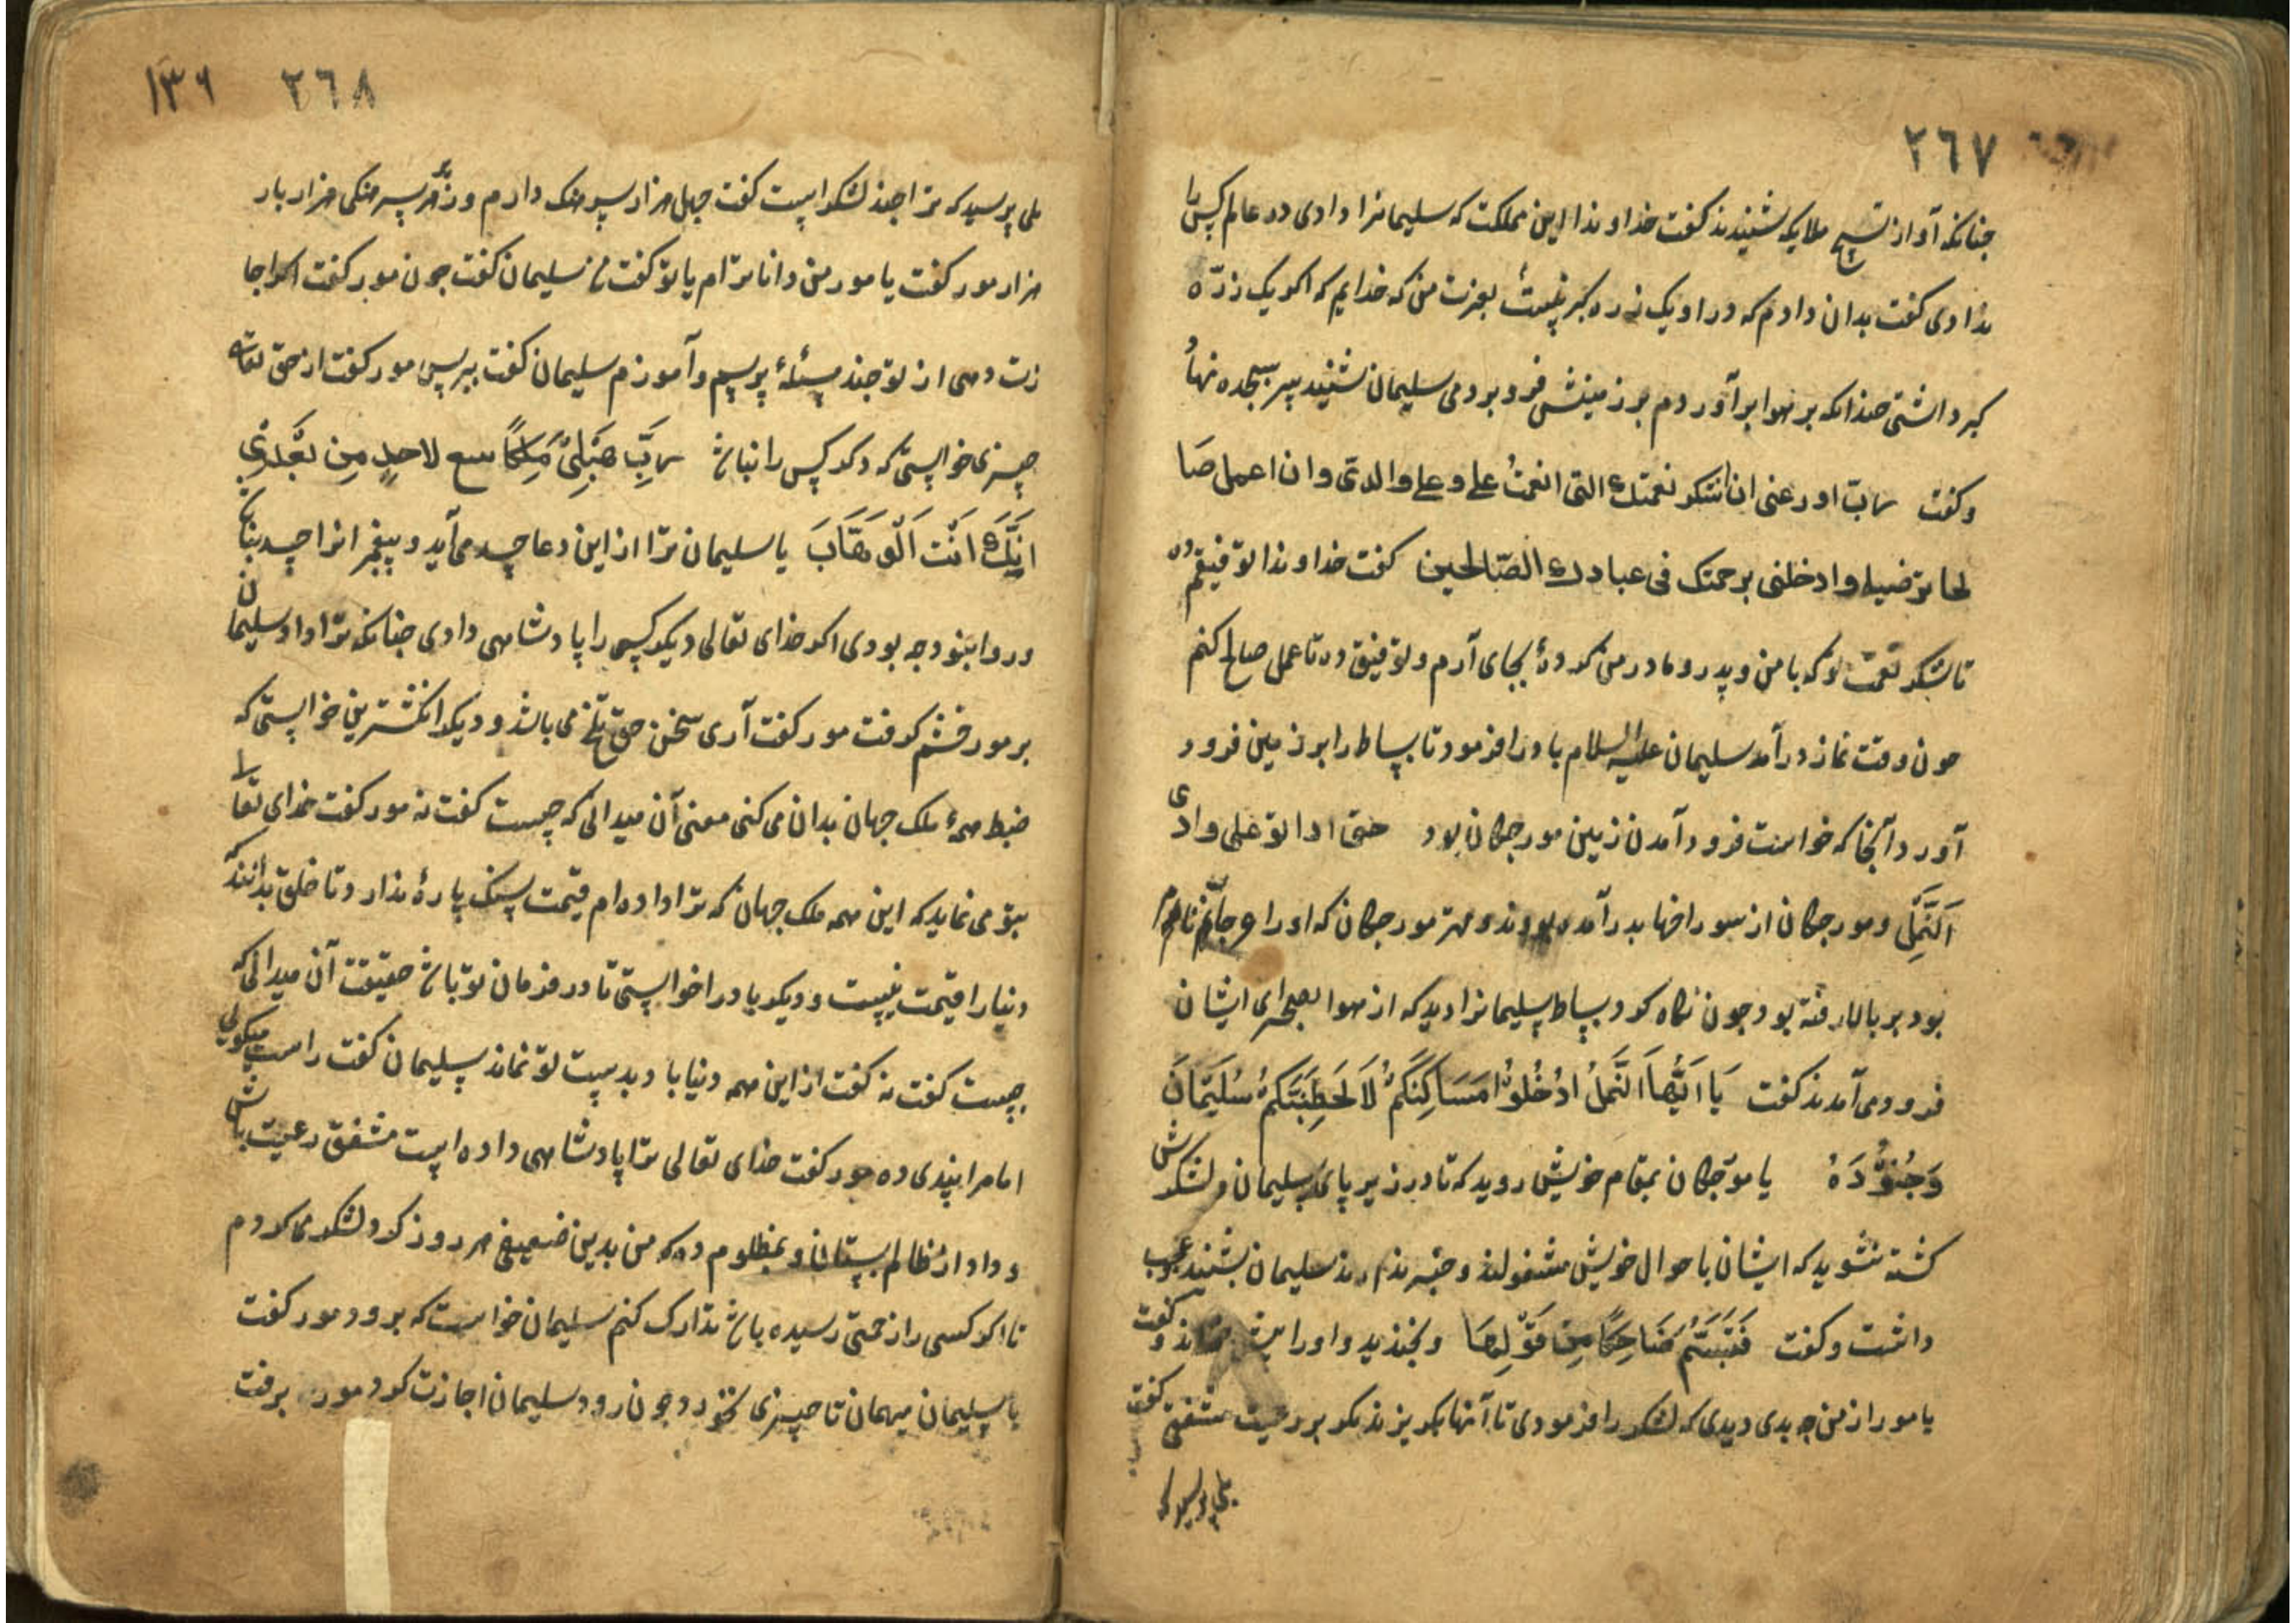 ٢٦٧
جنانکه آواز تسبیح ملایکه شنیدند کفت خداوندا این مملکت که سلیمانرا دادی در عالم کسی را
ندادی کفت بدان دادم که در او یک ذره کبر نیست بعزت من که خدایم که اکر یک ذرّه
کبر داشتی جندانکه بر هوا برآوردم بر زمینش فرو بردمی سلیمان شنید سر بسجده نهاد
وکفت رب اوزعنی ان اشکر نعمتک التی انعمت علی وعلی والدی وان اعمل صا
لحا ترضیه وادخلنی برحمتک فی عبادک الصّالحین کفت خداوندا توفیقم ده
تا شکر نعمت تو که با من و پدر و مادر من کردهٔ بجای آرم و توفیق ده تا عمل صالح کنم
جون وقت نماز درآمد سلیمان علیه السلام باد را فرمود تا بساط را بر زمین فرود
آورد آنجا که خواست فرود آمدن زمین مورجکان بود حتی اذا اتو علی وادی
اَلنَّمْلِ ومورجکان از سوراخها بدر آمده بودند ومهتر مورجکان که او را عرجا نام
بود بر بالا رفته بود جون نکاه کرد بساط سلیمانرا دید که از هوا بصحرای ایشان
فرود می آمدند کفت یَا اَیُّهَا اَلنَّملُ ادْخُلُوْا مَسَاکِنَکُمْ لَا یَحطِمَنَّکُمْ سُلَیمَانَ
وَجُنُوْدَهُ یا مورجکان بمقام خویش روید که تا در زیر پای سلیمان و لشکرش
کشته نشوید که ایشان باحوال خویش مشغولند و خبر ندارند سلیمان بشنید عجب
داشت وکفت فَتَبَسَّمُ ضَاحِکًا مِنْ قَوْلِهَا و بخندید و او را پیش خواند وکفت
یا مور از من جه بدی دیدی که لشکر را فرمودی تا آنها بکریزند مکر بر رعیت مشفقی کفت
بلی پرسید که
١٣٦ ٢٦٨
بلی پرسید که ترا جند لشکر است کفت جهل هزار سرهنک دارم و زیر هر سرهنکی هزار بار
هزار مور کفت یا مور من داناترام یا تو کفت من سلیمان کفت جون مور کفت اکر اجا
زت دهی از تو جند مسئلهٔ پرسم وآموزم سلیمان کفت بپرس مور کفت از حق تعالی
چیزی خواستی که دکر کس را نباشد رَبِّ هَبْلِیْ مُلکًا لاحدٍ مِن بَعْدِی
اِنَّکَ اَنْتَ اَلْوَهَّابَ یا سلیمان ترا از این دعا چه می آید و پیغمبرانرا چه بنا
ن ور وا بنود جه بودی اکر خدای تعالی دیکر کسی را پادشاهی دادی جنانکه ترا داد سلیمان
بر مور خشم کرفت مور کفت آری سخن حق تلخ می باشد و دیکر انکشترین خواستی که
ضبط همهٔ ملک جهان بدان می کنی معنی آن میدانی که چیست کفت نه مور کفت خدای تعالی
بتو می نماید که این همه ملک جهان که ترا داده ام قیمت سنک پارهٔ ندارد تا خلق بدانند که
دنیا را قیمت نیست و دیکر باد را خواستی تا در فرمان تو باشد حقیقت آن میدانی که
چیست کفت نه کفت از این همه دنیا باد بدست تو نماند سلیمان کفت راست میکویی
اما مرا پندی ده مور کفت خدای تعالی ترا پادشاهی داده است مشفق رعیت باش
و داد از ظالم بستان و بمظلوم ده که من بدین ضعیفی هر روز کرد لشکر می کردم
تا اکر کسی را زحمتی رسیده باشد تدارک کنم سلیمان خواست که برود مور کفت
یا سلیمان میهمان تا چیزی نخورد جون رود سلیمان اجازت کرد مور برفت